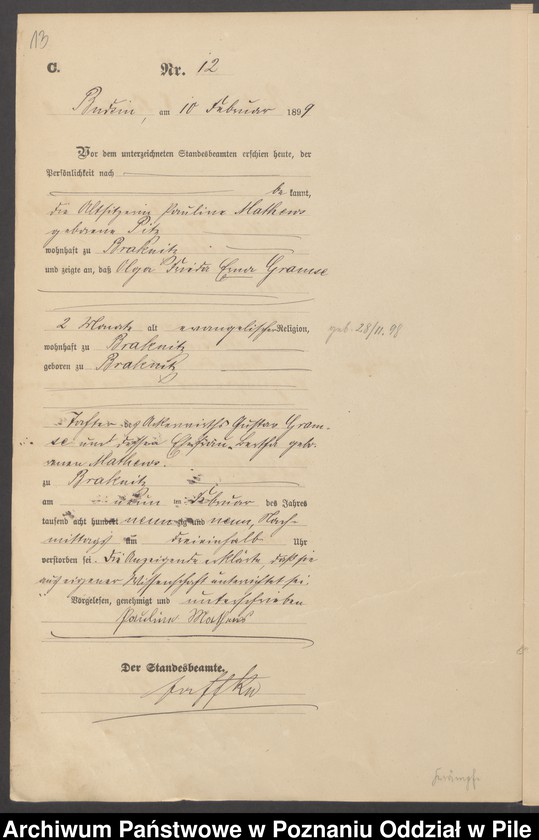 13
C. Nr. 12
Budsin, am 10 Februar 1899
Vor dem unterzeichneten Standesbeamten erschien heute, der
Persönlichkeit nach
be kannt,
die Altsitzerin Pauline Mathews
geborene Pitz
wohnhaft zu Braknitz
und zeigte an, daß Olga Frieda Erna Gramse
2 Monate alt evangelischer Religion,
wohnhaft zu Braknitz
geboren zu Braknitz
geb. 28/11. 98
Tochter des Ackerwirths Gustav Gram-
se und dessen Ehefrau Bertha gebo-
renen Mathews.
zu Braknitz
am neun im Februar des Jahres
tausend acht hundert neunzig und neun, Nach-
mittags um dreieinhalb Uhr
verstorben sei. Die Anzeigende erklärte, daß sie
aus eigener Wissenschaft unterrichtet sei
Vorgelesen, genehmigt und unterschrieben
Pauline
Der Standesbeamte.
Archiwum Państwowe w Poznaniu Oddział w Pile